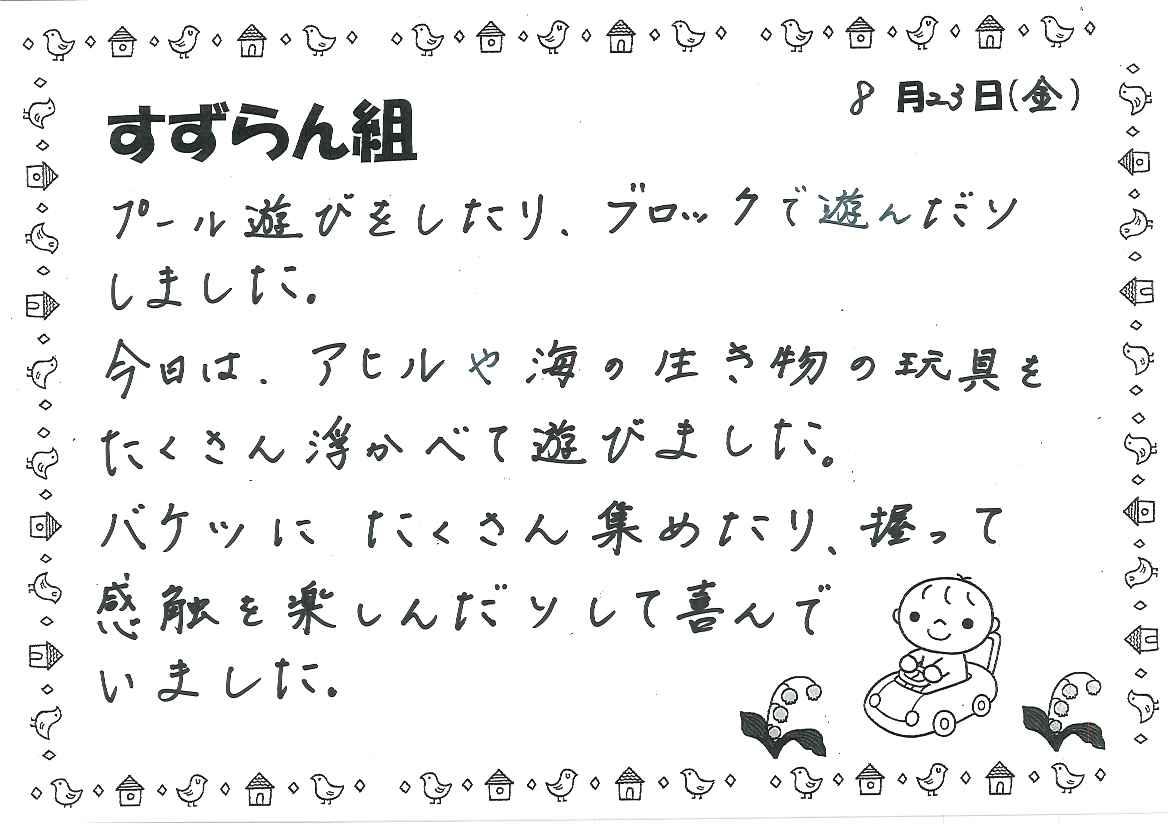 8月23日(金)
すずらん組
プール遊びをしたり、ブロックで遊んだり
しました。
今日は、アヒルや海の生き物の玩具を
たくさん浮かべて遊びました。
バケツにたくさん集めたり、握って
感触を楽しんだりして喜んで
いました。